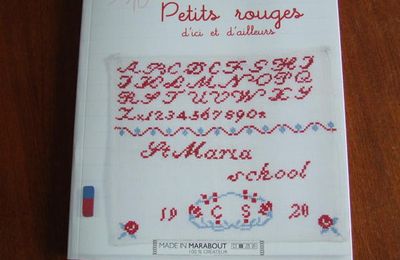 Petits rouges
d'ici et d'ailleurs
ABCDEFGHIJ
KLMNOPQ
RSTUVWXY
Z×1234567890×
St Maria
school
19 CS 20
MADE IN MARABOUT
100% CRÉATEUR